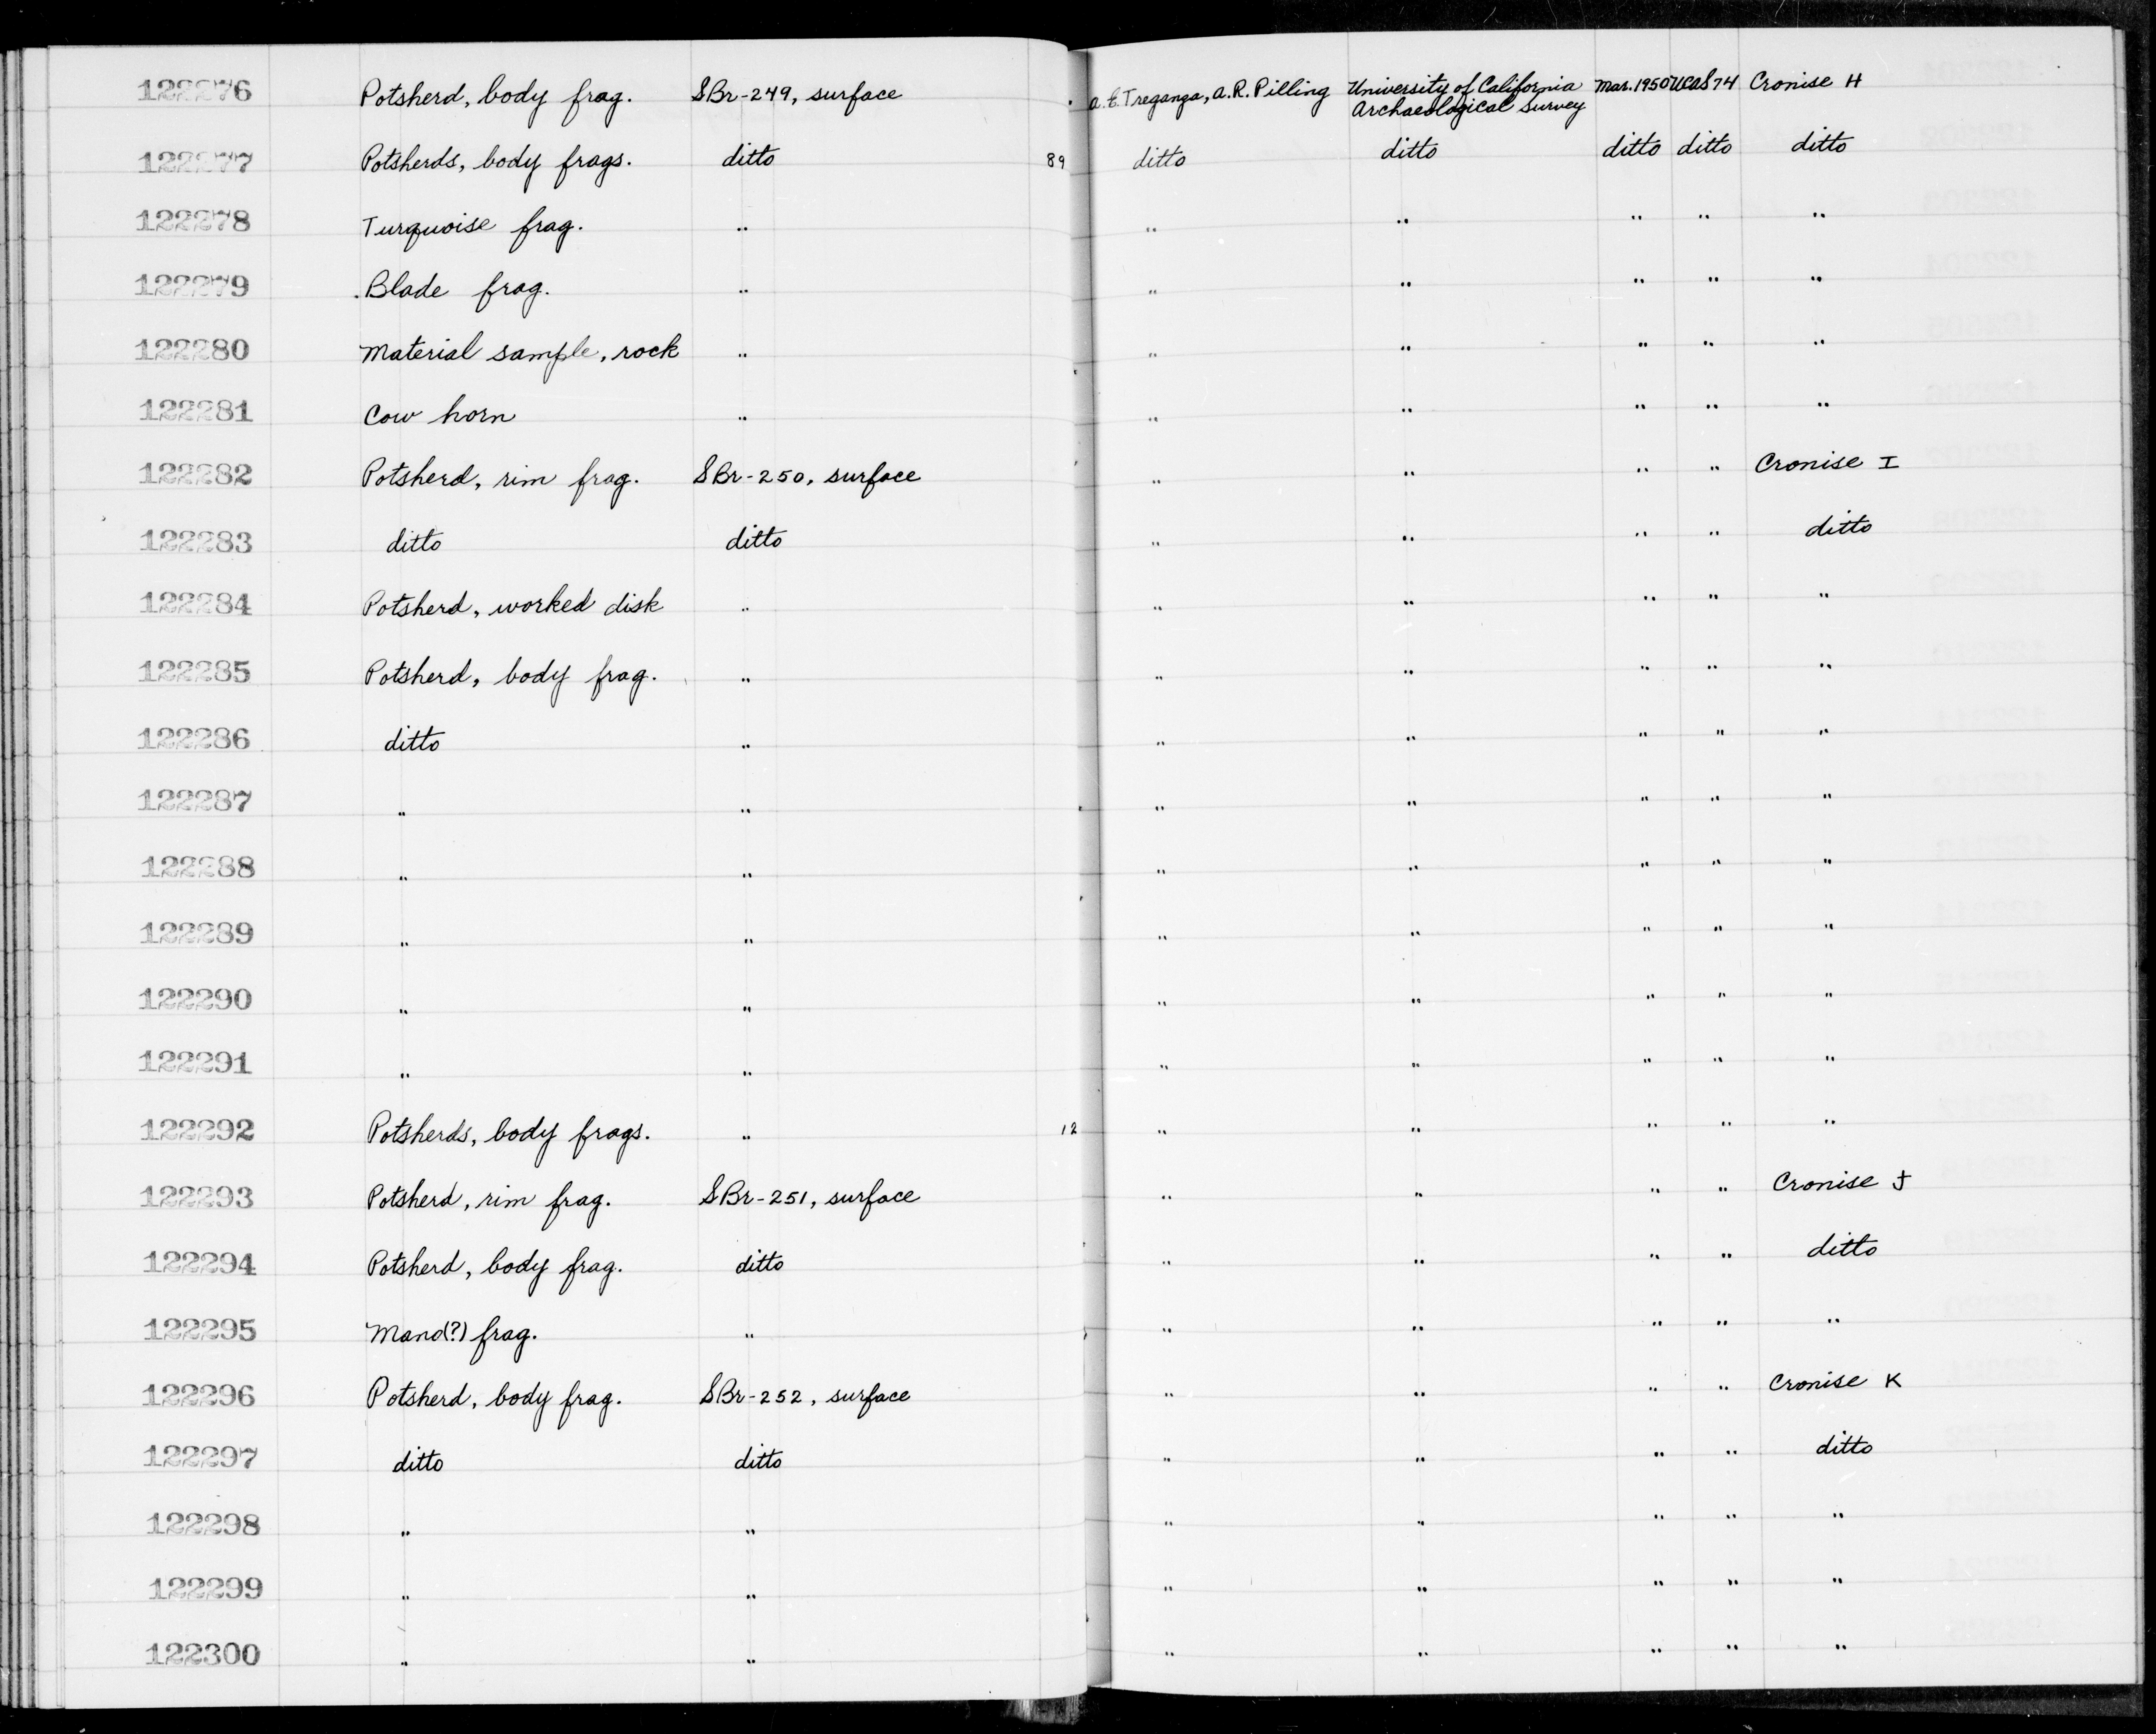 122276 Potsherd, body frag. SBr-249, surface a.E.Treganza, a.R.Pilling University of California Archaeological Survey Mar.1950 UCaS74 Cronise H
122277 Potsherds, body frags. ditto 89 ditto ditto ditto ditto ditto
122278 Turquoise frag. " " " " " "
122279 Blade frag. " " " " " "
122280 Material sample, rock " " " " " "
122281 Cow horn " " " " " "
122282 Potsherd, rim frag. SBr-250, surface " " " " Cronise I
122283 ditto ditto " " " " ditto
122284 Potsherd, worked disk " " " " " "
122285 Potsherd, body frag. " " " " " "
122286 ditto " " " " " "
122287 " " " " " " "
122288 " " " " " " "
122289 " " " " " " "
122290 " " " " " " "
122291 " " " " " " "
122292 Potsherds, body frags. " 12 " " " " "
122293 Potsherd, rim frag. SBr-251, surface " " " " Cronise J
122294 Potsherd, body frag. ditto " " " " ditto
122295 Mano(?) frag. " " " " " "
122296 Potsherd, body frag. SBr-252, surface " " " " Cronise K
122297 ditto ditto " " " " ditto
122298 " " " " " " "
122299 " " " " " " "
122300 " " " " " " "